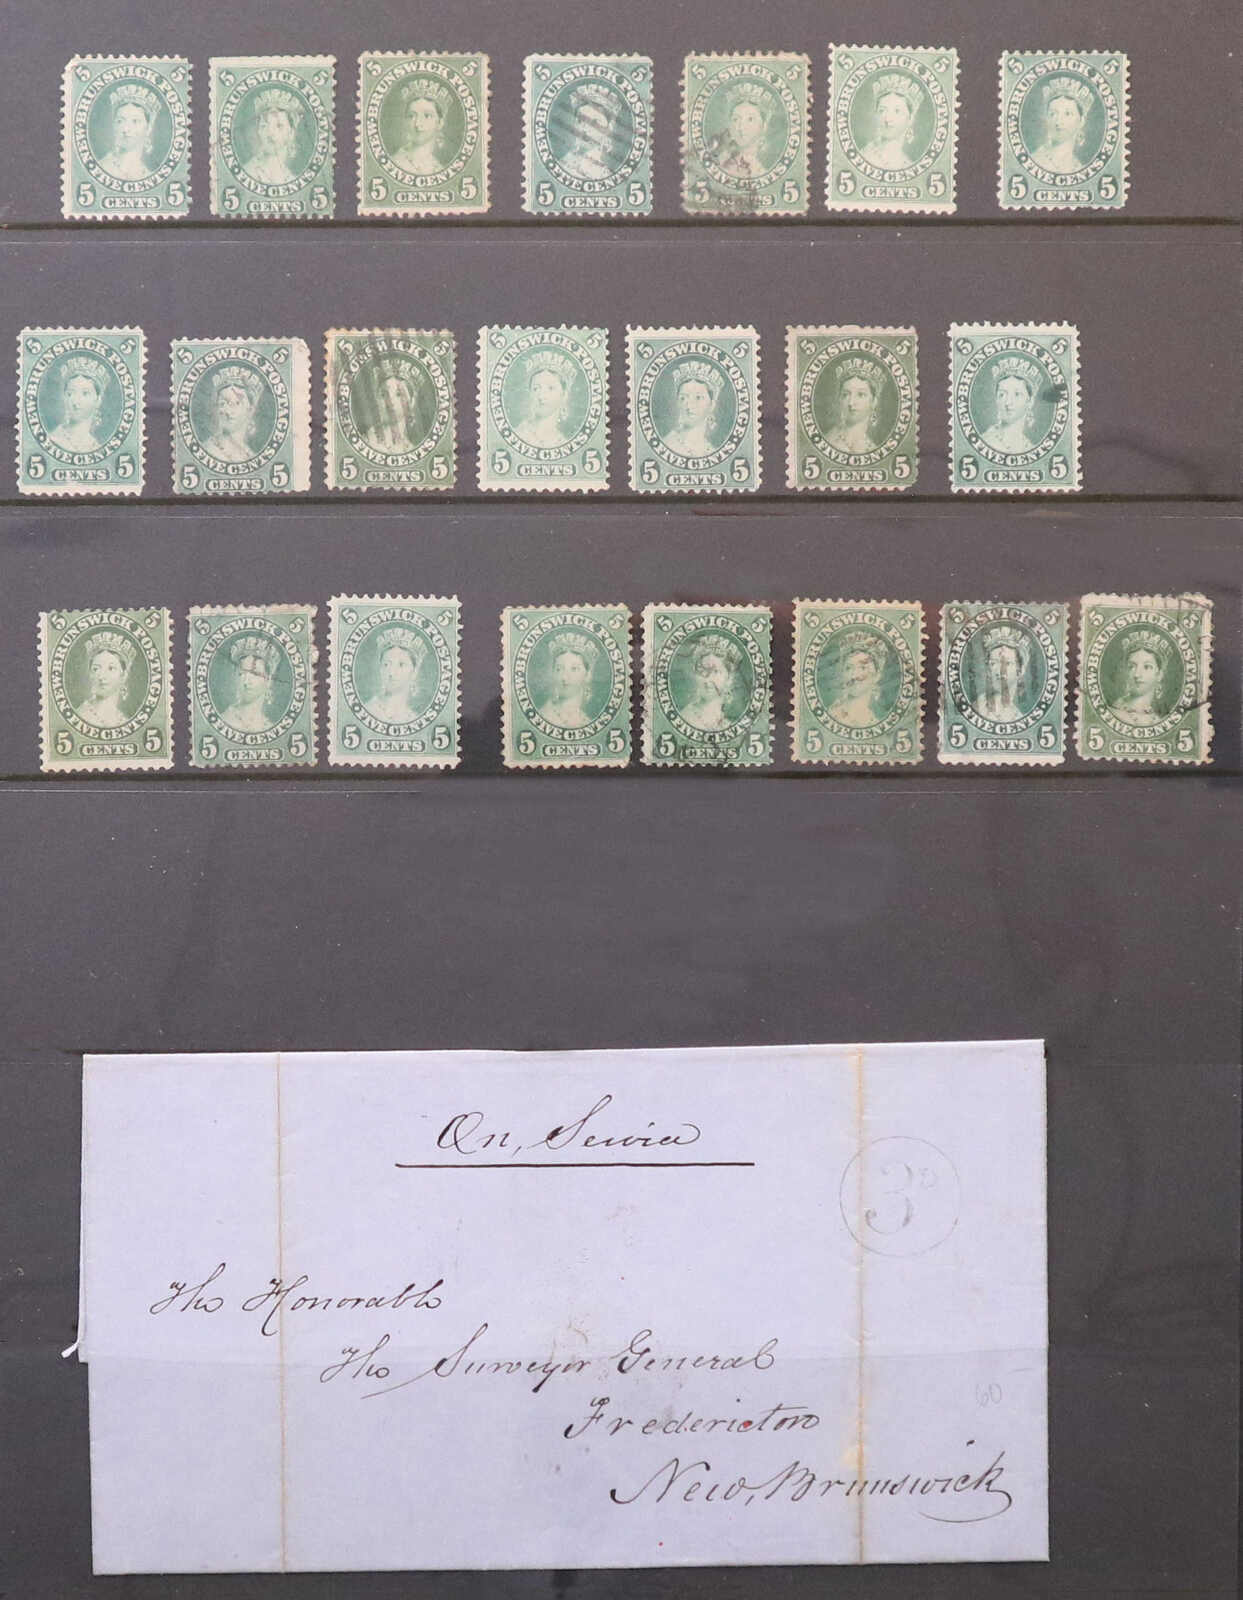 5 5
NEW-BRUNSWICK POSTAGE
FIVE CENTS
5 CENTS 5
5 5
NEW-BRUNSWICK POSTAGE
FIVE CENTS
5 CENTS 5
5 5
NEW-BRUNSWICK POSTAGE
FIVE CENTS
5 CENTS 5
5 5
NEW-BRUNSWICK POSTAGE
FIVE CENTS
5 CENTS 5
5 5
NEW-BRUNSWICK POSTAGE
FIVE CENTS
5 CENTS 5
5 5
NEW-BRUNSWICK POSTAGE
FIVE CENTS
5 CENTS 5
5 5
NEW-BRUNSWICK POSTAGE
FIVE CENTS
5 CENTS 5
5 5
NEW-BRUNSWICK POSTAGE
FIVE CENTS
5 CENTS 5
5 5
NEW-BRUNSWICK POSTAGE
FIVE CENTS
5 CENTS 5
5 5
NEW-BRUNSWICK POSTAGE
FIVE CENTS
5 CENTS 5
5 5
NEW-BRUNSWICK POSTAGE
FIVE CENTS
5 CENTS 5
5 5
NEW-BRUNSWICK POSTAGE
FIVE CENTS
5 CENTS 5
5 5
NEW-BRUNSWICK POSTAGE
FIVE CENTS
5 CENTS 5
5 5
NEW-BRUNSWICK POSTAGE
FIVE CENTS
5 CENTS 5
5 5
NEW-BRUNSWICK POSTAGE
FIVE CENTS
5 CENTS 5
5 5
NEW-BRUNSWICK POSTAGE
FIVE CENTS
5 CENTS 5
5 5
NEW-BRUNSWICK POSTAGE
FIVE CENTS
5 CENTS 5
5 5
NEW-BRUNSWICK POSTAGE
FIVE CENTS
5 CENTS 5
5 5
NEW-BRUNSWICK POSTAGE
FIVE CENTS
5 CENTS 5
5 5
NEW-BRUNSWICK POSTAGE
FIVE CENTS
5 CENTS 5
5 5
NEW-BRUNSWICK POSTAGE
FIVE CENTS
5 CENTS 5
5 5
NEW-BRUNSWICK POSTAGE
FIVE CENTS
5 CENTS 5
On, Service
3D
The Honorable
The Surveyor General
Fredericton
New, Brunswick
60